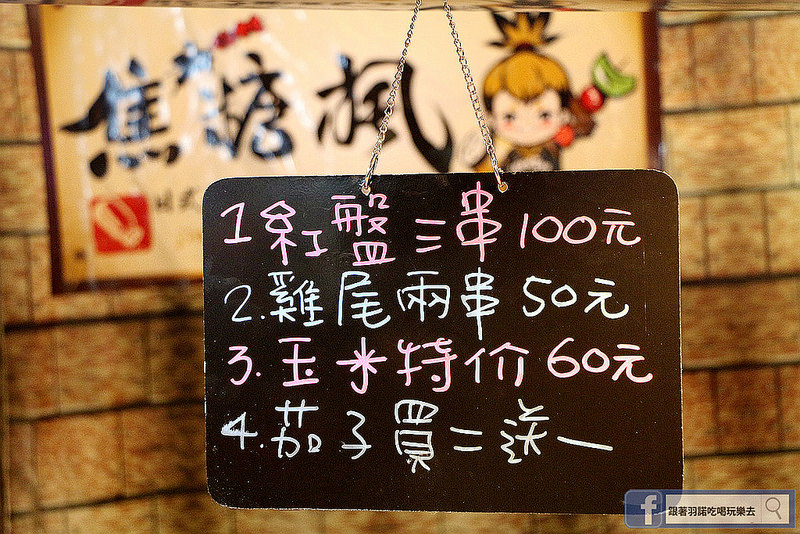 焦糖楓
1紅盤三串100元
2.雞尾兩串50元
3.玉米特价60元
4.茄子買二送一
跟著羽諾吃喝玩樂去